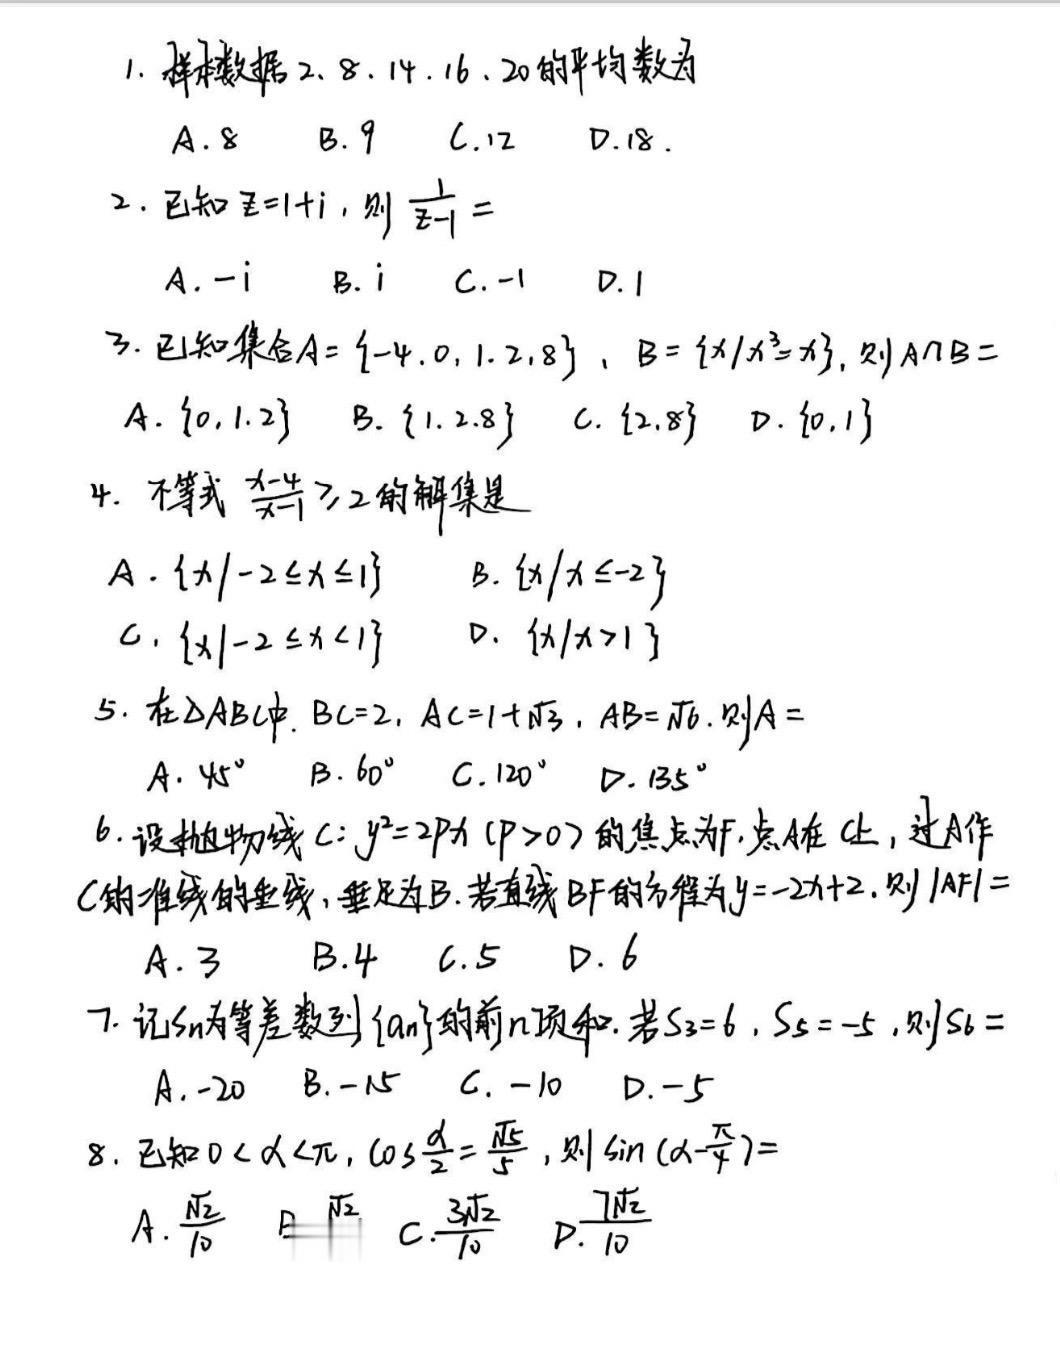 1. 样本数据2、8、14、16、20的平均数为
A. 8 B. 9 C. 12 D. 18.
2. 已知z=1+i, 则 1/(z-1) =
A. -i B. i C. -1 D. 1
3. 已知集合A={-4.0,1.2,8}、B={x/x³=x}, 则A∩B=
A. {0,1.2} B. {1.2.8} C. {2.8} D. {0,1}
4. 不等式 (x-4)/(x-1) ≥ 2的解集是
A. {x/-2≤x≤1} B. {x/x≤-2}
C. {x|-2≤x<1} D. {x/x>1}
5. 在△ABC中. BC=2, AC=1+√3, AB=√6. 则A=
A. 45° B. 60° C. 120° D. 135°
6. 设抛物线C: y²=2px (p>0) 的焦点为F. 点A在C上, 过A作
C的准线的垂线, 垂足为B. 若直线BF的方程为y=-2x+2. 则|AF|=
A. 3 B. 4 C. 5 D. 6
7. 记Sn为等差数列{an}的前n项和. 若S3=6, S5=-5, 则S6=
A. -20 B. -15 C. -10 D. -5
8. 已知0<α<π, cos α/2 = √5/5, 则sin(α-π/4)=
A. √2/10 √2 C. 3√2/10 D. 7√2/10